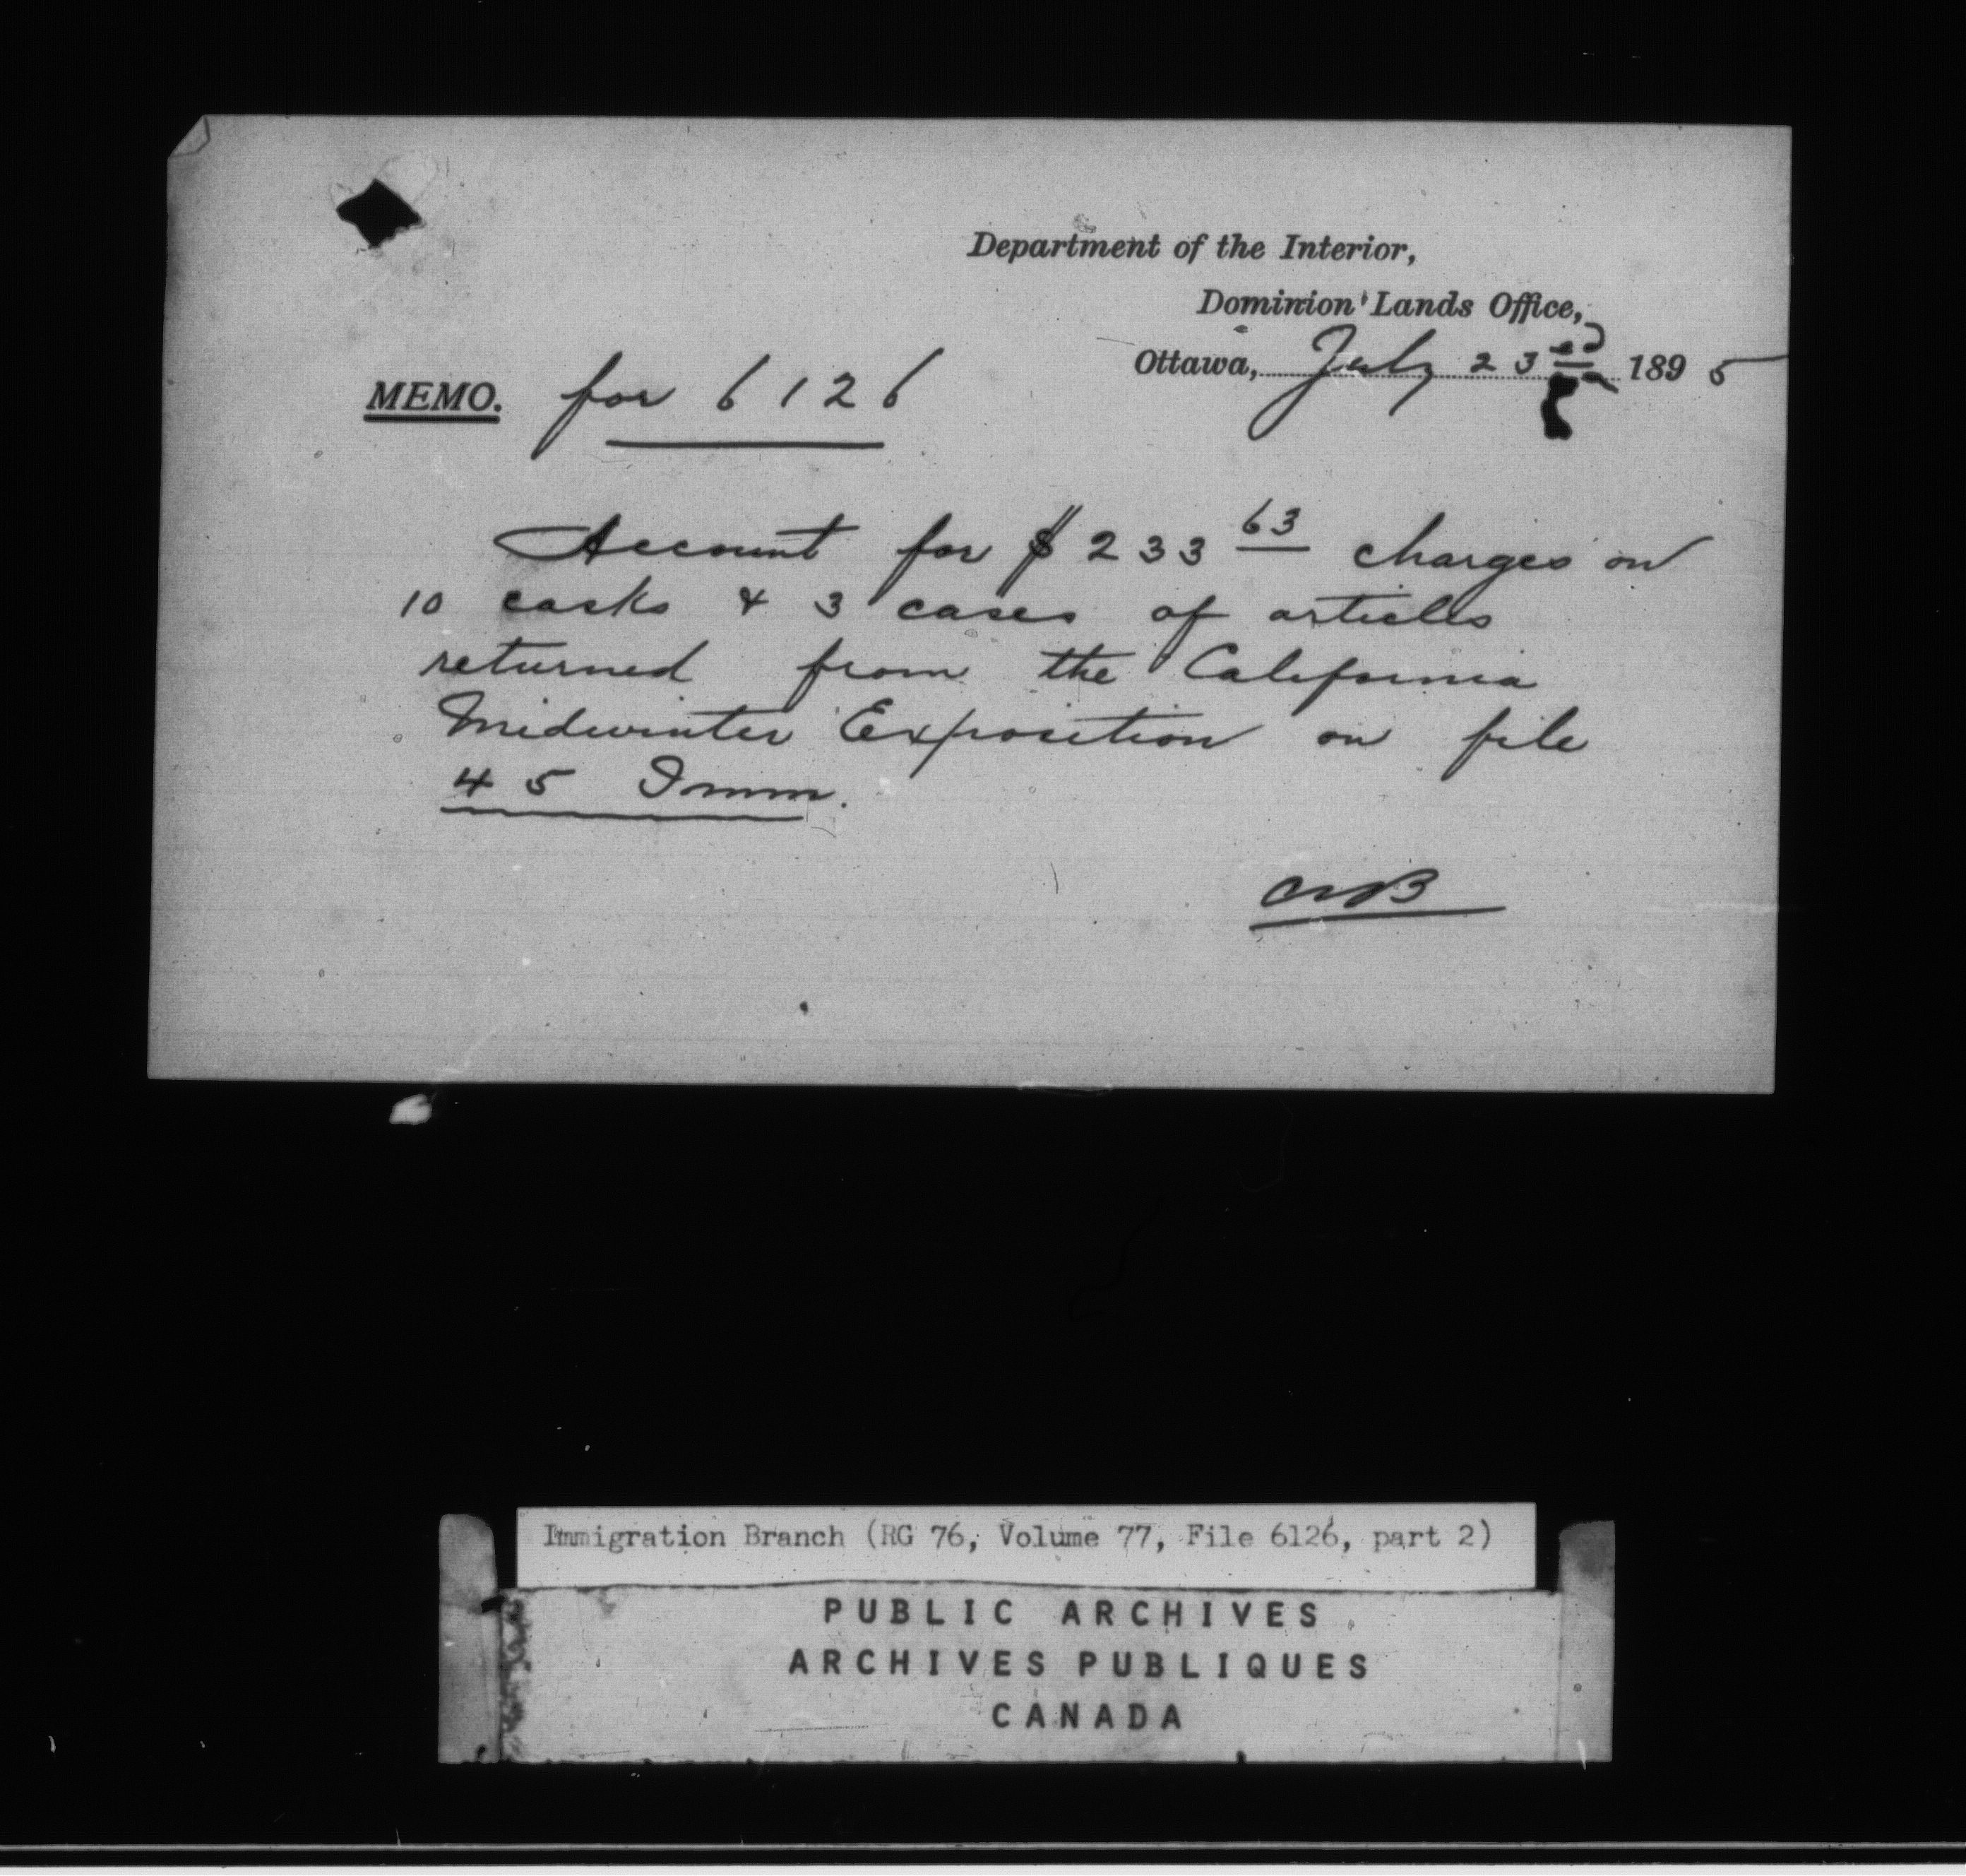 Department of the Interior,
Dominion Lands Office,
Ottawa, July 23rd 1895
MEMO. for 6126
Account for $233 63 charges on
10 casks & 3 cases of articles
returned from the California
Midwinter Exposition on file
45 Imm.
Immigration Branch (RG 76, Volume 77, File 6126, part 2)
PUBLIC ARCHIVES
ARCHIVES PUBLIQUES
CANADA